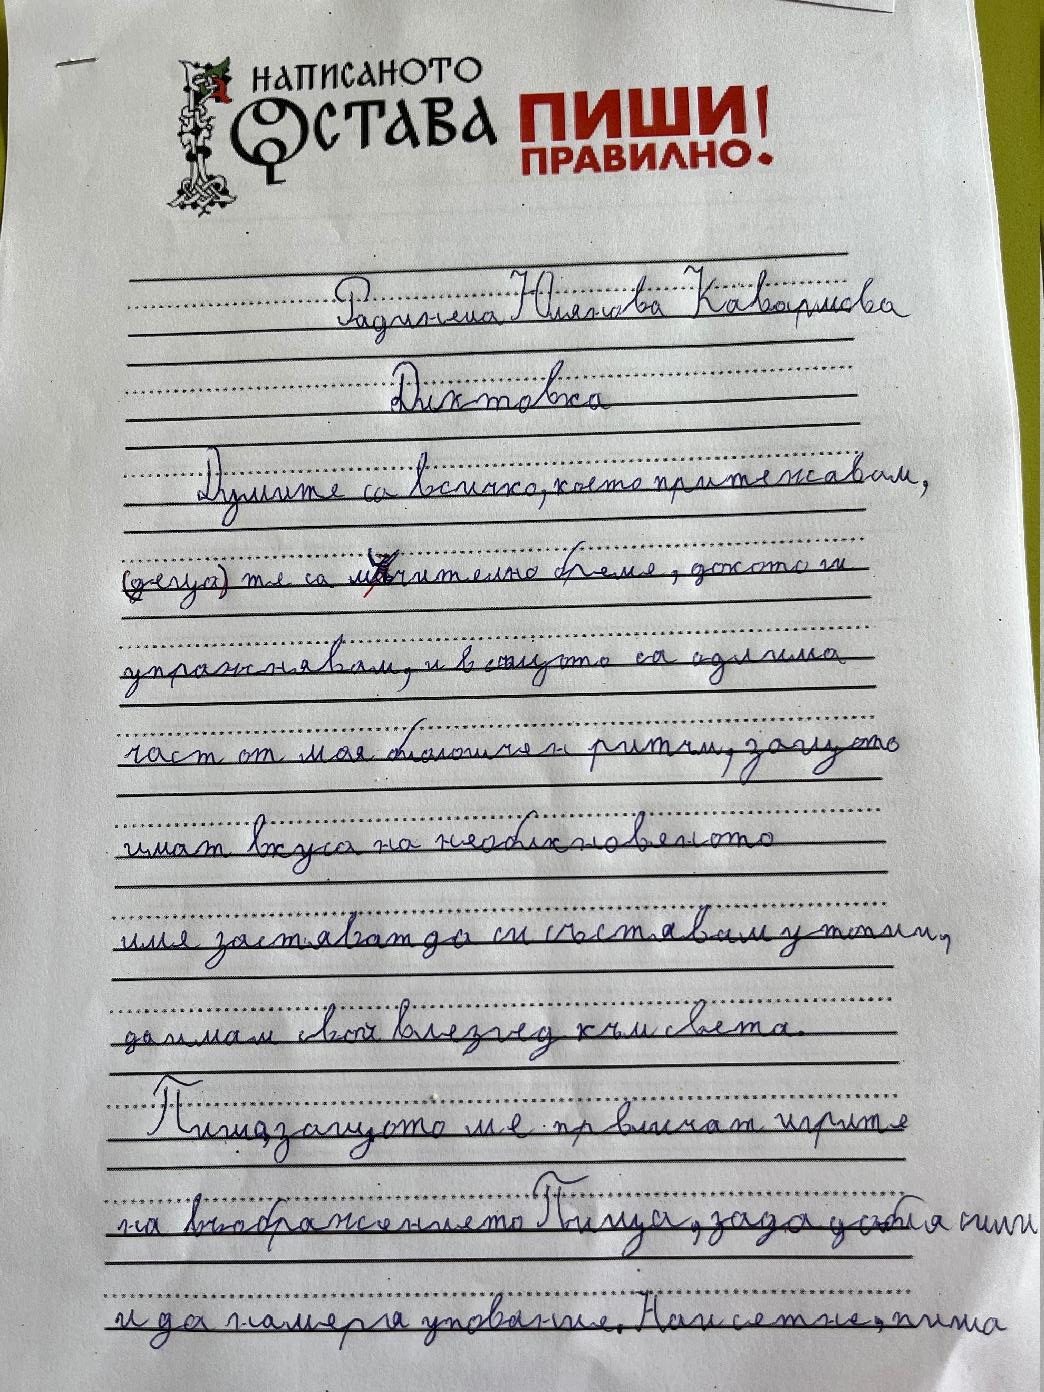 НАПИСАНОТО
ОСТАВА
ПИШИ!
ПРАВИЛНО!
Радинела Юлянова Кавармова
Диктовка
Думите са всичко, което притежавам,
те са мъчително бреме, докото ги
упражнявам, и всъщото са одлима
част от моя биологичен ритъм, защото
имат вкуса на необикновеното
име заставят да си съставям утопии,
да имам свой влезгед към света.
Пиша, защото ме привличат игрите
на въображението Пиша, за да добия сили
и да намеря упование. Наисетне, пиша